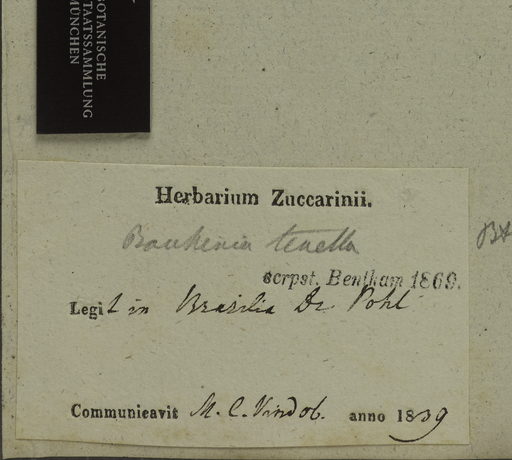 BOTANISCHE
STAATSSAMMLUNG
MÜNCHEN
Herbarium Zuccarinii.
Bauhenia tenella
scrpst. Bentham 1869.
Legit in Brasilia Dr Pohl
Communicavit M. C. Vindob. anno 1839